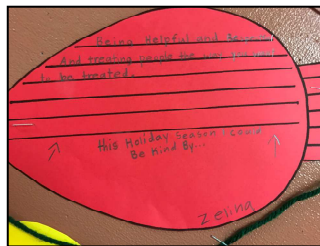 Being Helpful and
And treating people the way
to be treated.
this Holiday Season I could
Be Kind By...
Zelina